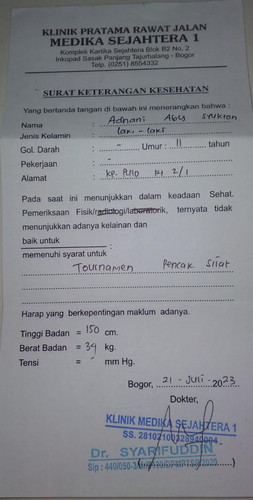 KLINIK PRATAMA RAWAT JALAN
MEDIKA SEJAHTERA 1
Komplek Kartika Sejahtera Blok B2 No. 2
Inkopad Sasak Panjang Tajurhalang - Bogor
Telp. (0251) 8554332
SURAT KETERANGAN KESEHATAN
Yang bertanda tangan di bawah ini menerangkan bahwa :
Nama : Adnani Abu
Jenis Kelamin : laki - laki
Gol. Darah : - Umur : 11 tahun
Pekerjaan : -
Alamat : kp. 2/1
Pada saat ini menunjukkan dalam keadaan Sehat.
Pemeriksaan Fisik/radiologi/laboratorik, ternyata tidak
menunjukkan adanya kelainan dan
baik untuk :
memenuhi syarat untuk
Tournamen Pencak Silat
Harap yang berkepentingan maklum adanya.
Tinggi Badan = 150 cm.
Berat Badan = 34 kg.
Tensi = - mm Hg.
Bogor, 21 - Juli - 2023
Dokter,
KLINIK MEDIKA SEJAHTERA 1
SS. 28102100228940004
Dr. SYARIFUDDIN